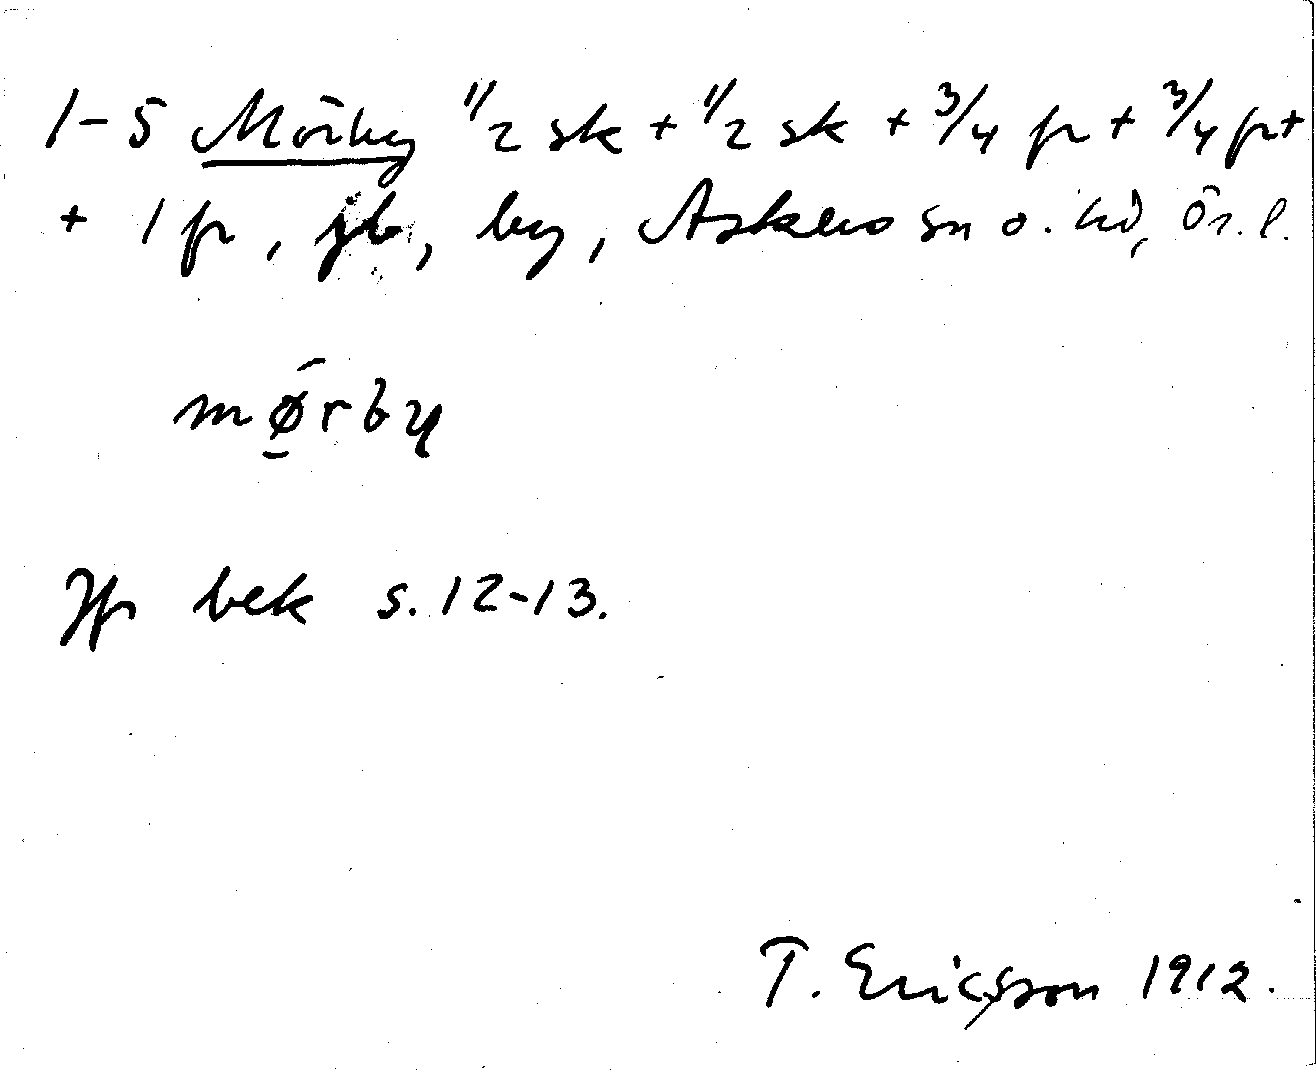 1-5 Mörby 1/2 sk + 1/2 sk + 3/4 fr + 3/4 fr +
+ 1 fr, jb, by, Askers sn o. hd, Ör. l.
mǿ̱rby
Jfr bek s. 12-13.
T. Ericsson 1912.